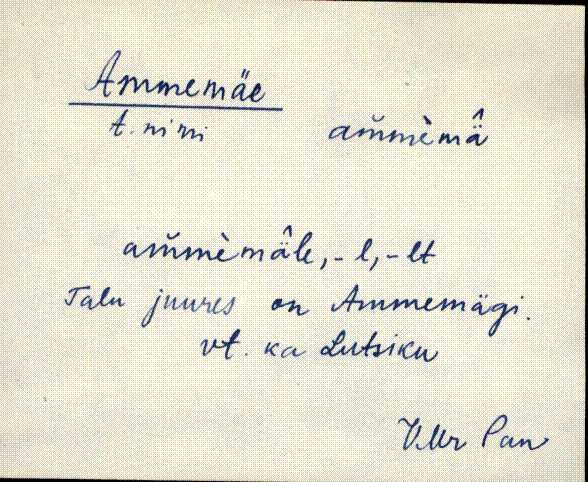 Ammemäe
t. nimi am̆mèmä̂
am̆mèmä̂le, -l, -lt
Talu juures on Ammemägi.
vt. ka Lutsiku
V.Ur Pan